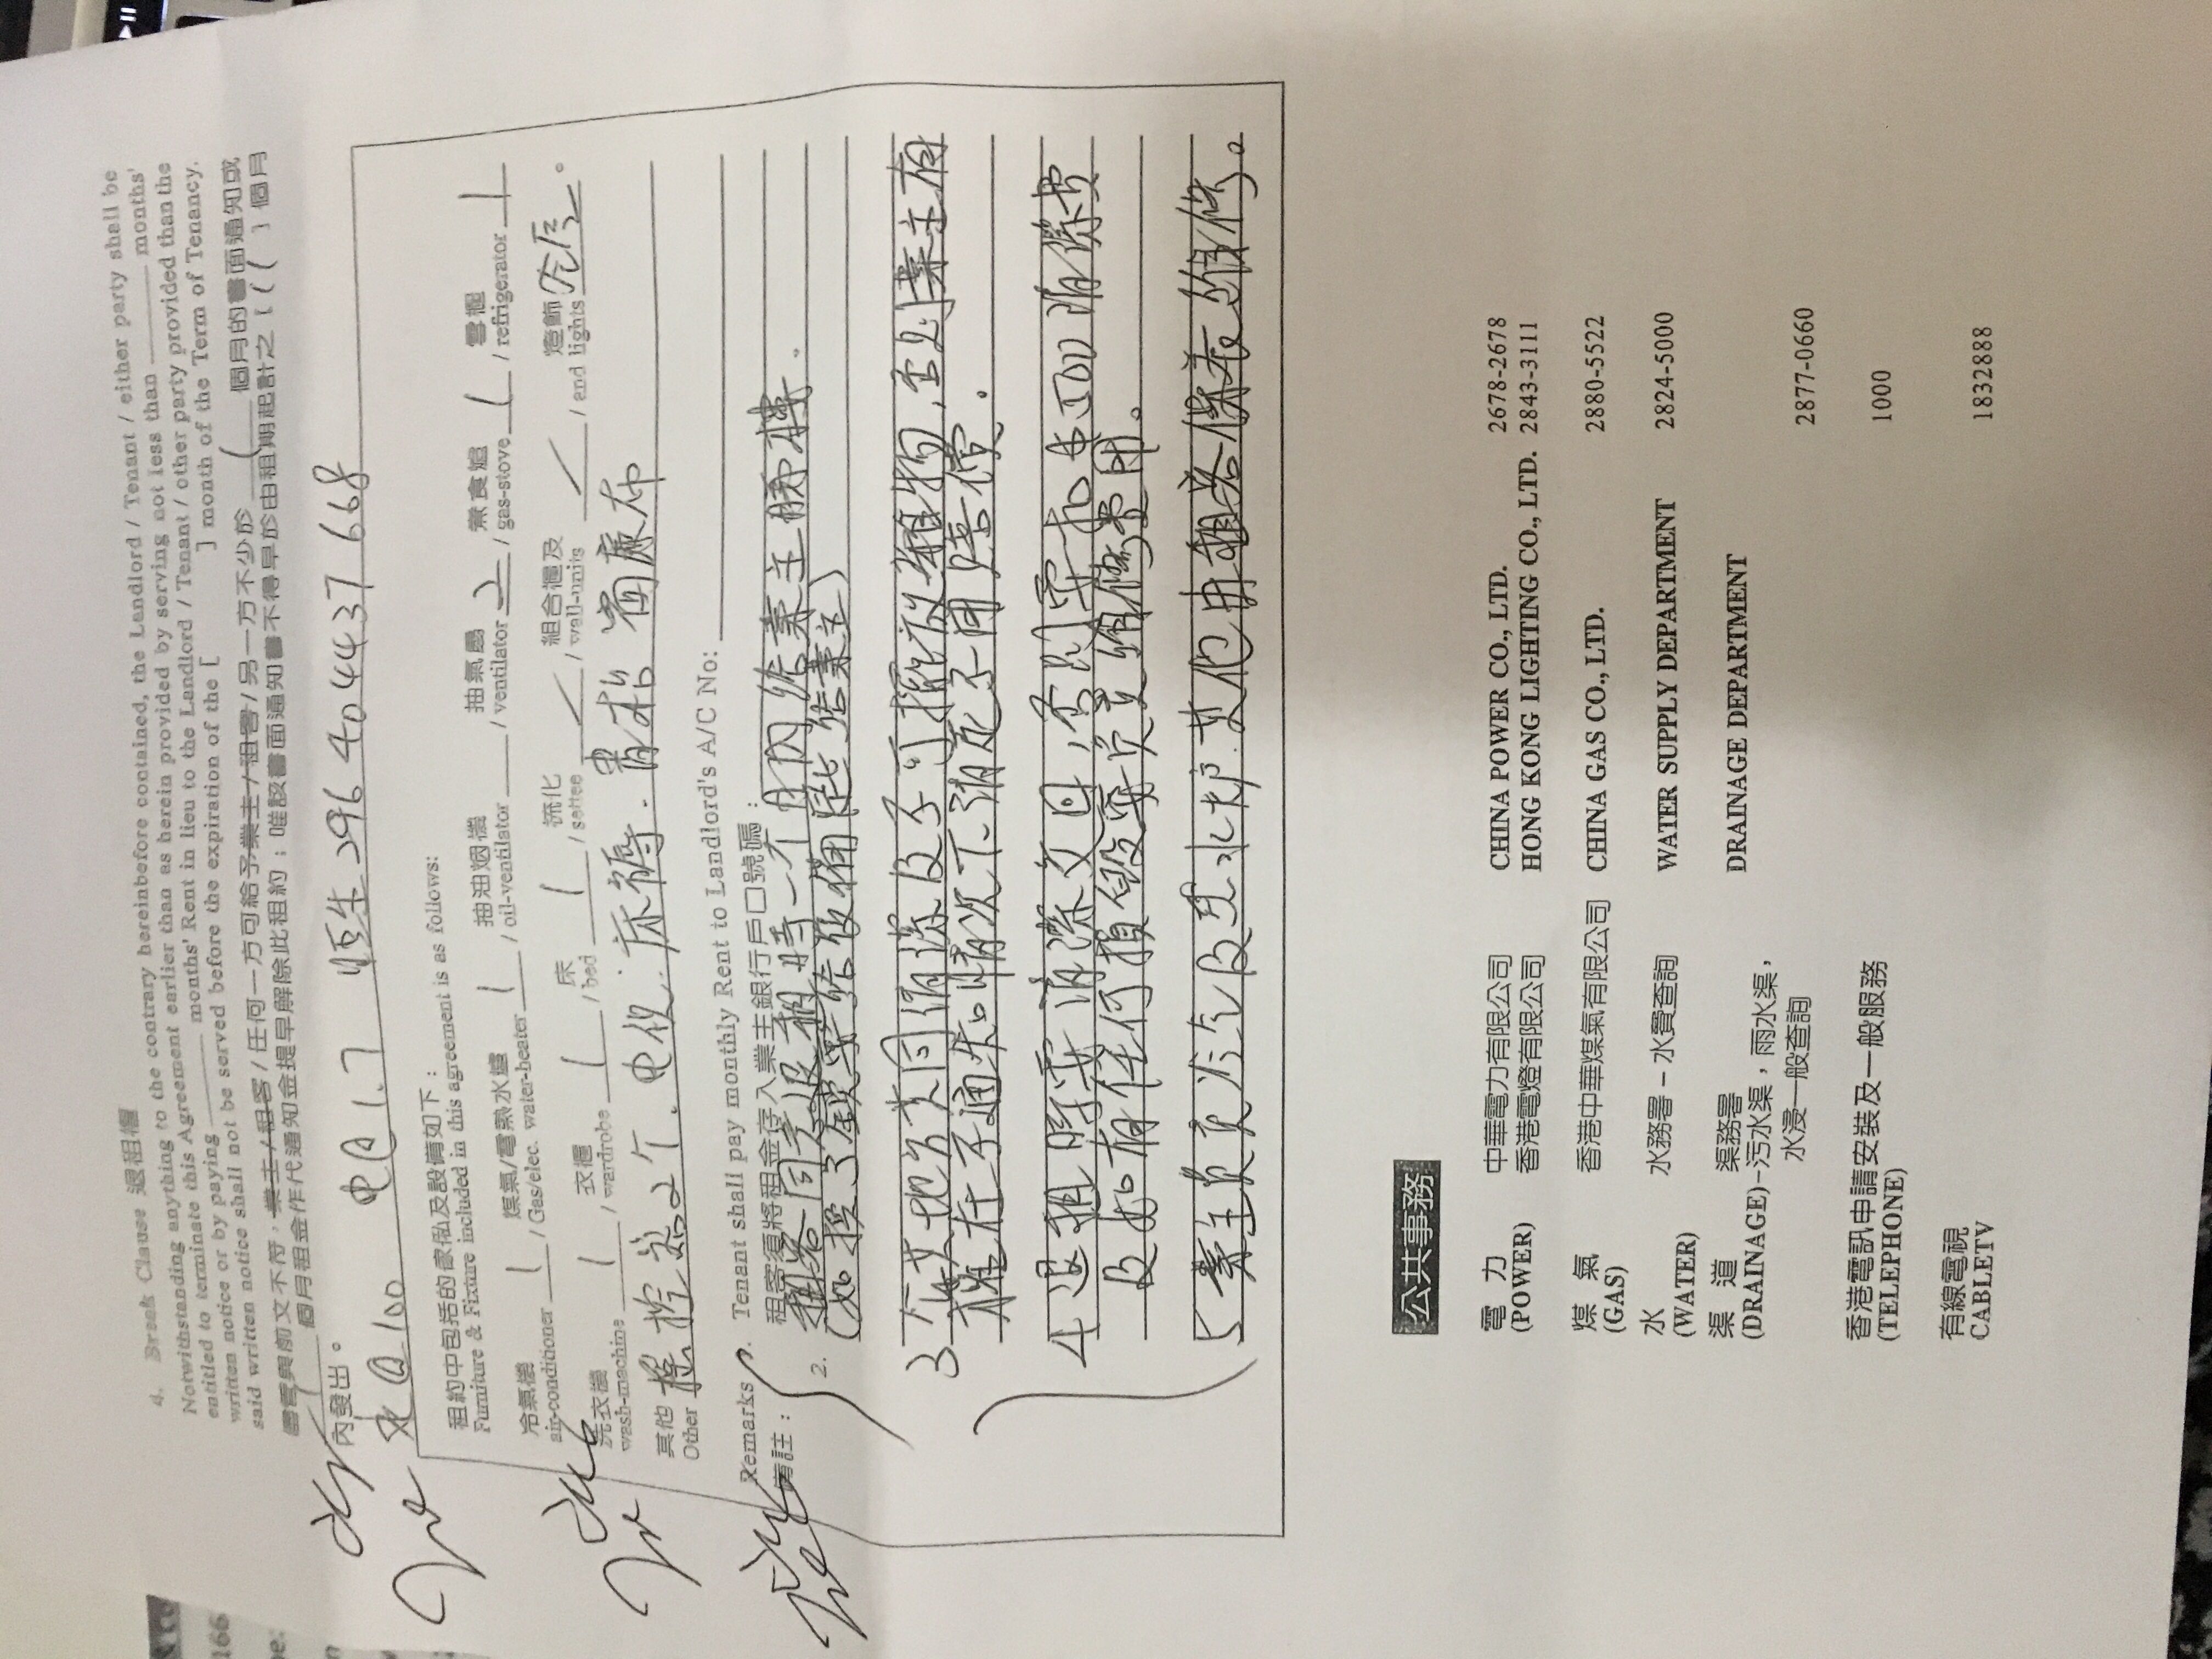 4. Break Clause 退租權
Notwithstanding anything to the contrary hereinbefore contained, the Landlord / Tenant / either party shall be
entitled to terminate this Agreement earlier than as herein provided by serving not less than ______ months'
written notice or by paying ______ months' Rent in lieu to the Landlord / Tenant / other party provided than the
said written notice shall not be served before the expiration of the [ ] month of the Term of Tenancy.
儘管與前文不符，業主/租客/任何一方可給予業主/租客/另一方不少於 1 個月的書面通知或
1 個月租金作代通知金提早解除此租約；唯該書面通知書不得早於由租期起計之 [ ( ] 個月
內發出。
水@100 电@1.7 恒生 296 4044 37 668
租約中包括的傢俬及設備如下：
Furniture & Fixture included in this agreement is as follows:
冷氣機 1 煤氣/電熱水爐 1 抽油烟機 抽氣扇 2 煮食爐 1 雪櫃 1
air-conditioner / Gas/elec. water-beater / oil-ventilator / ventilator / gas-stove / refrigerator
洗衣機 1 衣櫃 1 床 1 梳化 組合櫃及 燈飾
wash-machine / wardrobe / bed / settee / wall-units / end lights
其他 2个. 电视. 床褥. 書枱 窗廉布
Other
Remarks 1. Tenant shall pay monthly Rent to Landlord's A/C No:
備註： 租客須將租金存入業主銀行戶口號碼：
2. 租客同意退租時一个月內給業主睇樓.
3 不放地方共同消潔及不可擺放雜物，否則業主有
權在不通知情況下清走不用賠償.
4 退租時要清潔交回，否則要扣$500清潔費
及如有任何損毀要負責維修費用。
5 業主負責冷气及热水炉. 其他由租客保养维修。
公共事務
電力 中華電力有限公司 CHINA POWER CO., LTD. 2678-2678
(POWER) 香港電燈有限公司 HONG KONG LIGHTING CO., LTD. 2843-3111
煤氣 香港中華煤氣有限公司 CHINA GAS CO., LTD. 2880-5522
(GAS)
水 水務署－水費查詢 WATER SUPPLY DEPARTMENT 2824-5000
(WATER)
渠道 渠務署 DRAINAGE DEPARTMENT
(DRAINAGE)－污水渠，雨水渠，
水浸—般查詢 2877-0660
香港電訊申請安裝及一般服務 1000
(TELEPHONE)
有線電視 1832888
CABLETV